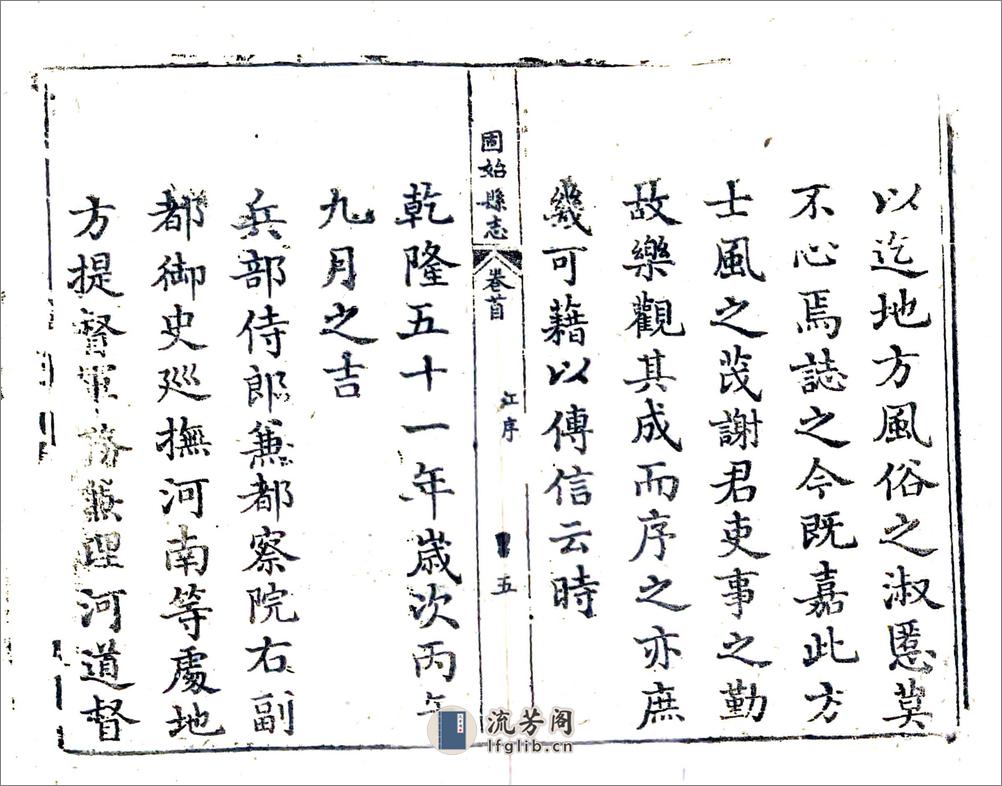 以迄地方風俗之淑慝莫
不心焉誌之今既嘉此方
士風之茂謝君吏事之勤
故樂觀其成而序之亦庶
幾可藉以傳信云時
固始縣志
卷首
江序
五
乾隆五十一年歲次丙午
九月之吉
兵部侍郎兼都察院右副
都御史廵撫河南等處地
方提督軍務兼理河道督
流芳阁
lfglib.cn